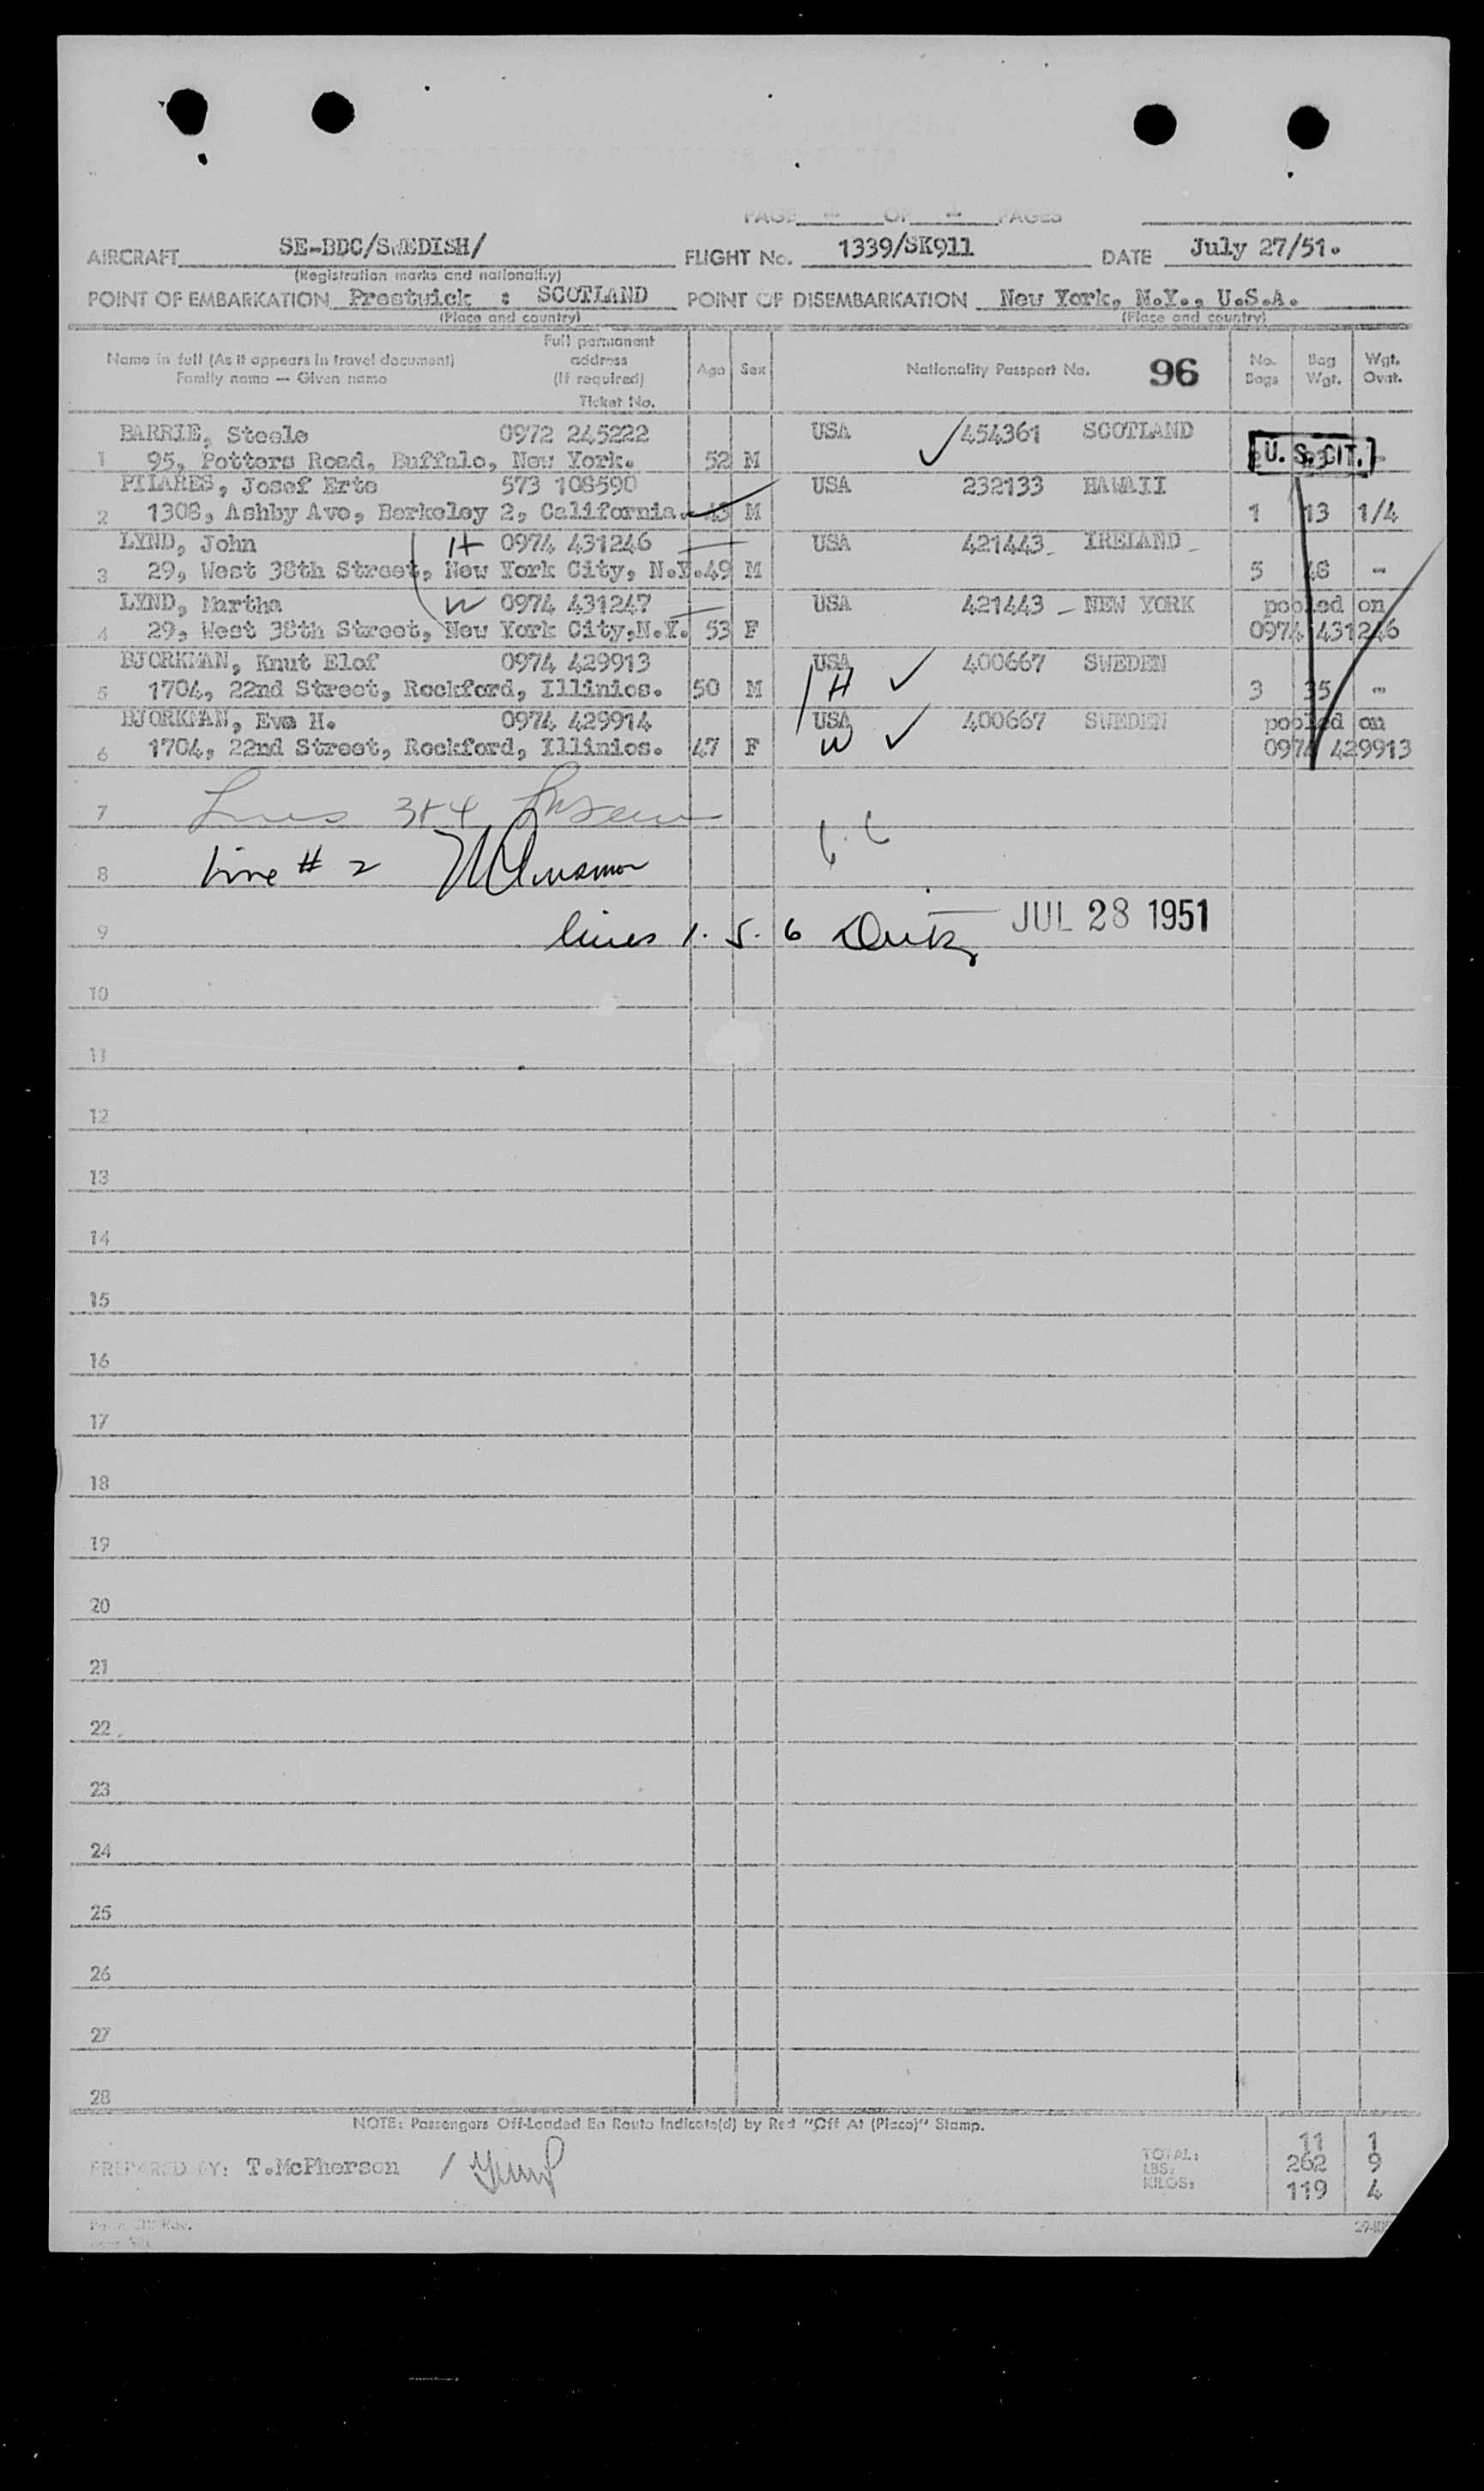 PAGE OF PAGES
AIRCRAFT SE-BDC/SWEDISH/ FLIGHT No. 1339/SK911 DATE July 27/51.
(Registration marks and nationality)
POINT OF EMBARKATION Prestwick : SCOTLAND POINT OF DISEMBARKATION New York, N.Y., U.S.A.
(Place and country) (Place and country)
Name in full (As it appears in travel document) Family name — Given name Full permanent address (If required) Ticket No. Age Sex Nationality Passport No. 96 No. Bags Bag Wgt. Wgt. Ovnt.
BARRIE, Steele 0972 245222 USA 454361 SCOTLAND
1 95, Potters Road, Buffalo, New York. 52 M U. S. CIT. -
PILARES, Josef Erte 573 108590 USA 232133 HAWAII
2 1308, Ashby Ave, Berkeley 2, California. M 1 13 1/4
LYND, John H 0974 431246 USA 421443 IRELAND
3 29, West 38th Street, New York City, N.Y. 49 M 5 48 -
LYND, Martha W 0974 431247 USA 421443 NEW YORK pooled on
4 29, West 38th Street, New York City,N.Y. 53 F 0974 431246
BJORKMAN, Knut Elof 0974 429913 USA 400667 SWEDEN
5 1704, 22nd Street, Rockford, Illinios. 50 M H 3 35 -
BJORKMAN, Eva H. 0974 429914 USA 400667 SWEDEN pooled on
6 1704, 22nd Street, Rockford, Illinios. 47 F W 0974 429913
7 Lines 3+4
8 Line # 2
9 lines 1. 5. 6 JUL 28 1951
10
11
12
13
14
15
16
17
18
19
20
21
22
23
24
25
26
27
28
NOTE: Passengers Off-Loaded En Route Indicate(d) by Red "Off At (Place)" Stamp.
PREPARED BY: T.McPherson
TOTAL: 11 1
LBS: 262 9
KILOS: 119 4